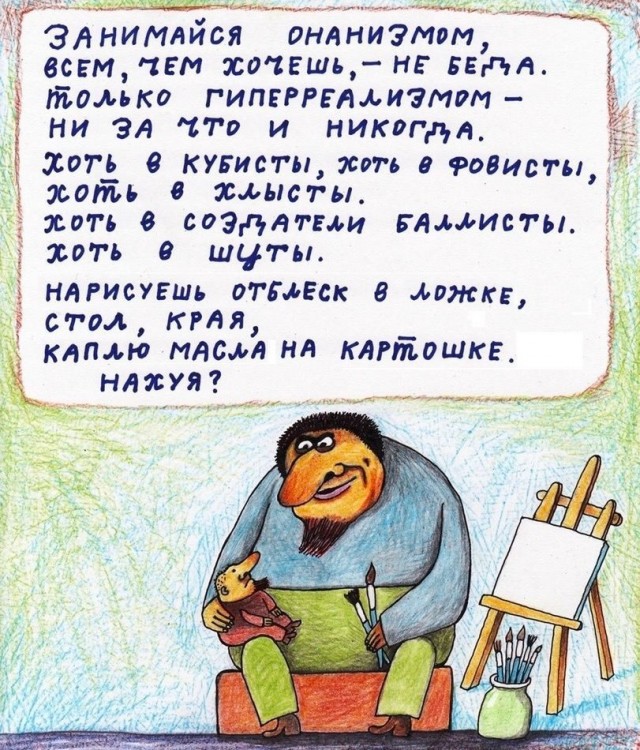 ЗАНИМАЙСЯ ОНАНИЗМОМ,
ВСЕМ, ЧЕМ ХОЧЕШЬ, – НЕ БЕДА.
ТОЛЬКО ГИПЕРРЕАЛИЗМОМ –
НИ ЗА ЧТО И НИКОГДА.
ХОТЬ В КУБИСТЫ, ХОТЬ В ФОВИСТЫ,
ХОТЬ В ХЛЫСТЫ.
ХОТЬ В СОЗДАТЕЛИ БАЛЛИСТЫ.
ХОТЬ В ШУТЫ.
НАРИСУЕШЬ ОТБЛЕСК В ЛОЖКЕ,
СТОЛ, КРАЯ,
КАПЛЮ МАСЛА НА КАРТОШКЕ.
НАХУЯ?